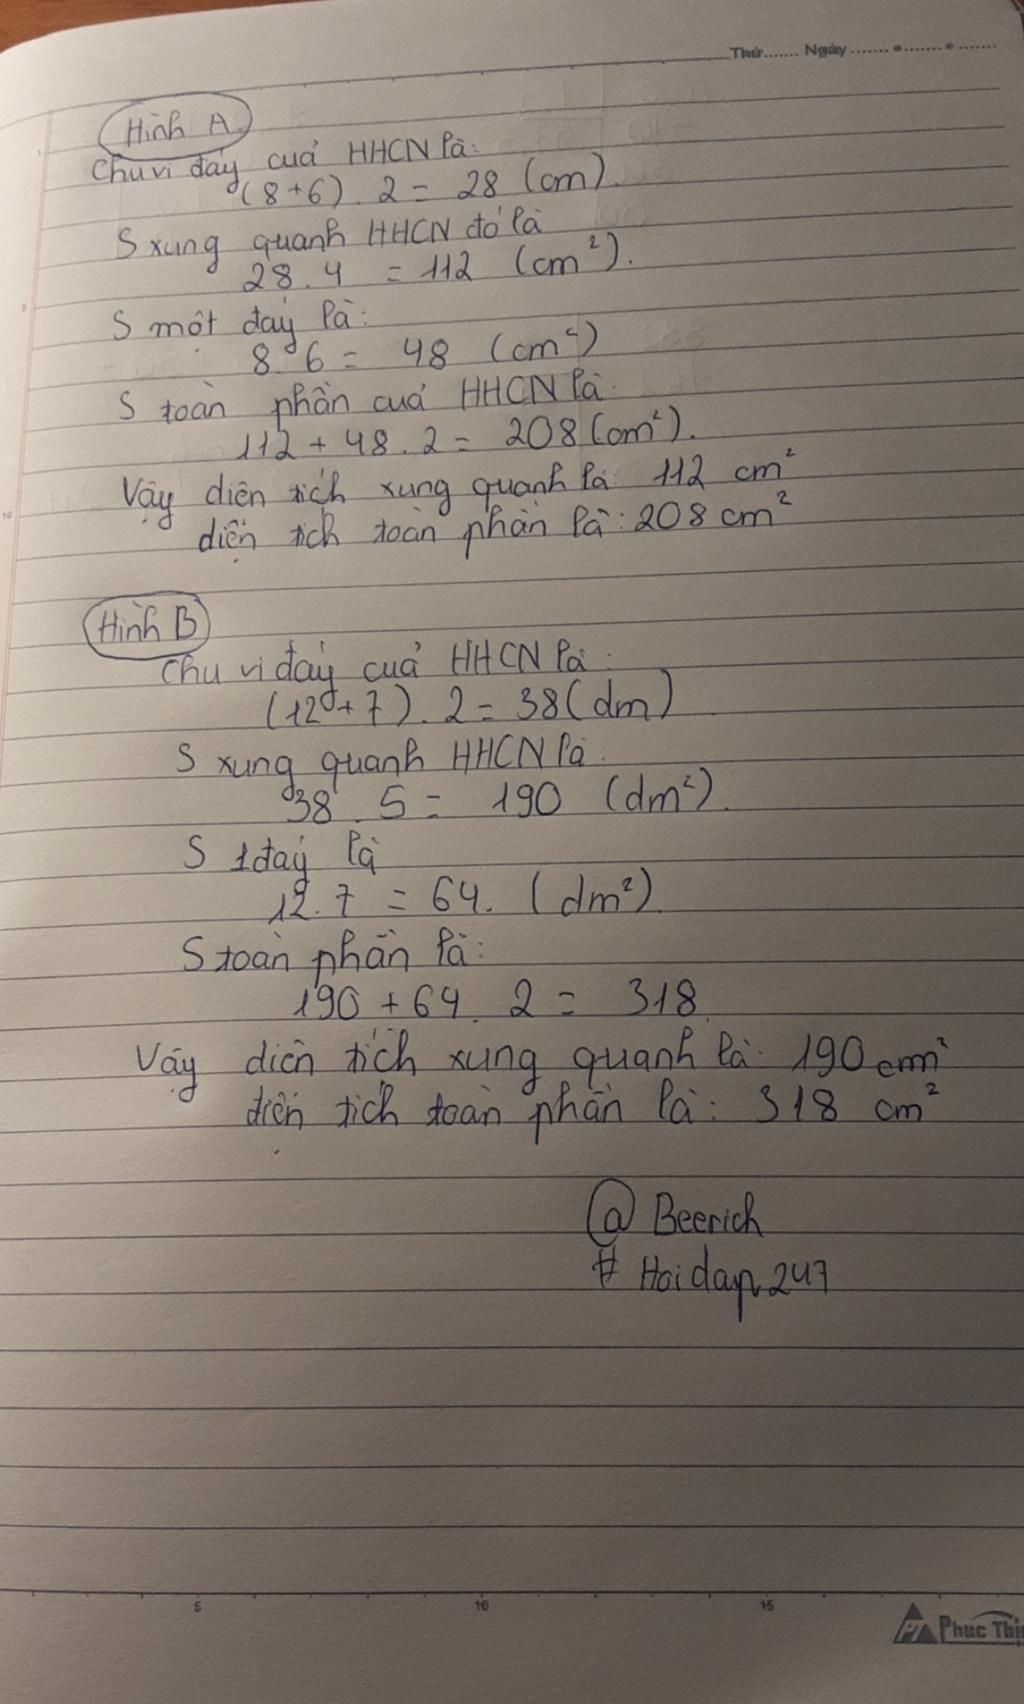 Thứ....... Ngày ....... • ....... • .......
Hình A
Chu vi đáy của HHCN là:
(8+6). 2 = 28 (cm).
S xung quanh HHCN đó là
28. 4 = 112 (cm²).
S một đáy là:
8.6 = 48 (cm²)
S toàn phần của HHCN là:
112 + 48. 2 = 208 (cm²).
Vậy diện tích xung quanh là: 112 cm²
diện tích toàn phần là: 208 cm²
Hình B
Chu vi đáy của HHCN là:
(12+7). 2 = 38 (dm)
S xung quanh HHCN là.
38. 5 = 190 (dm²).
S 1 đáy là
12. 7 = 64. (dm²)
S toàn phần là:
190 + 64. 2 = 318
Vậy diện tích xung quanh là: 190 cm²
diện tích toàn phần là: 318 cm²
@ Beerich
# Hoidap247
5 10 15
Phuc Thị